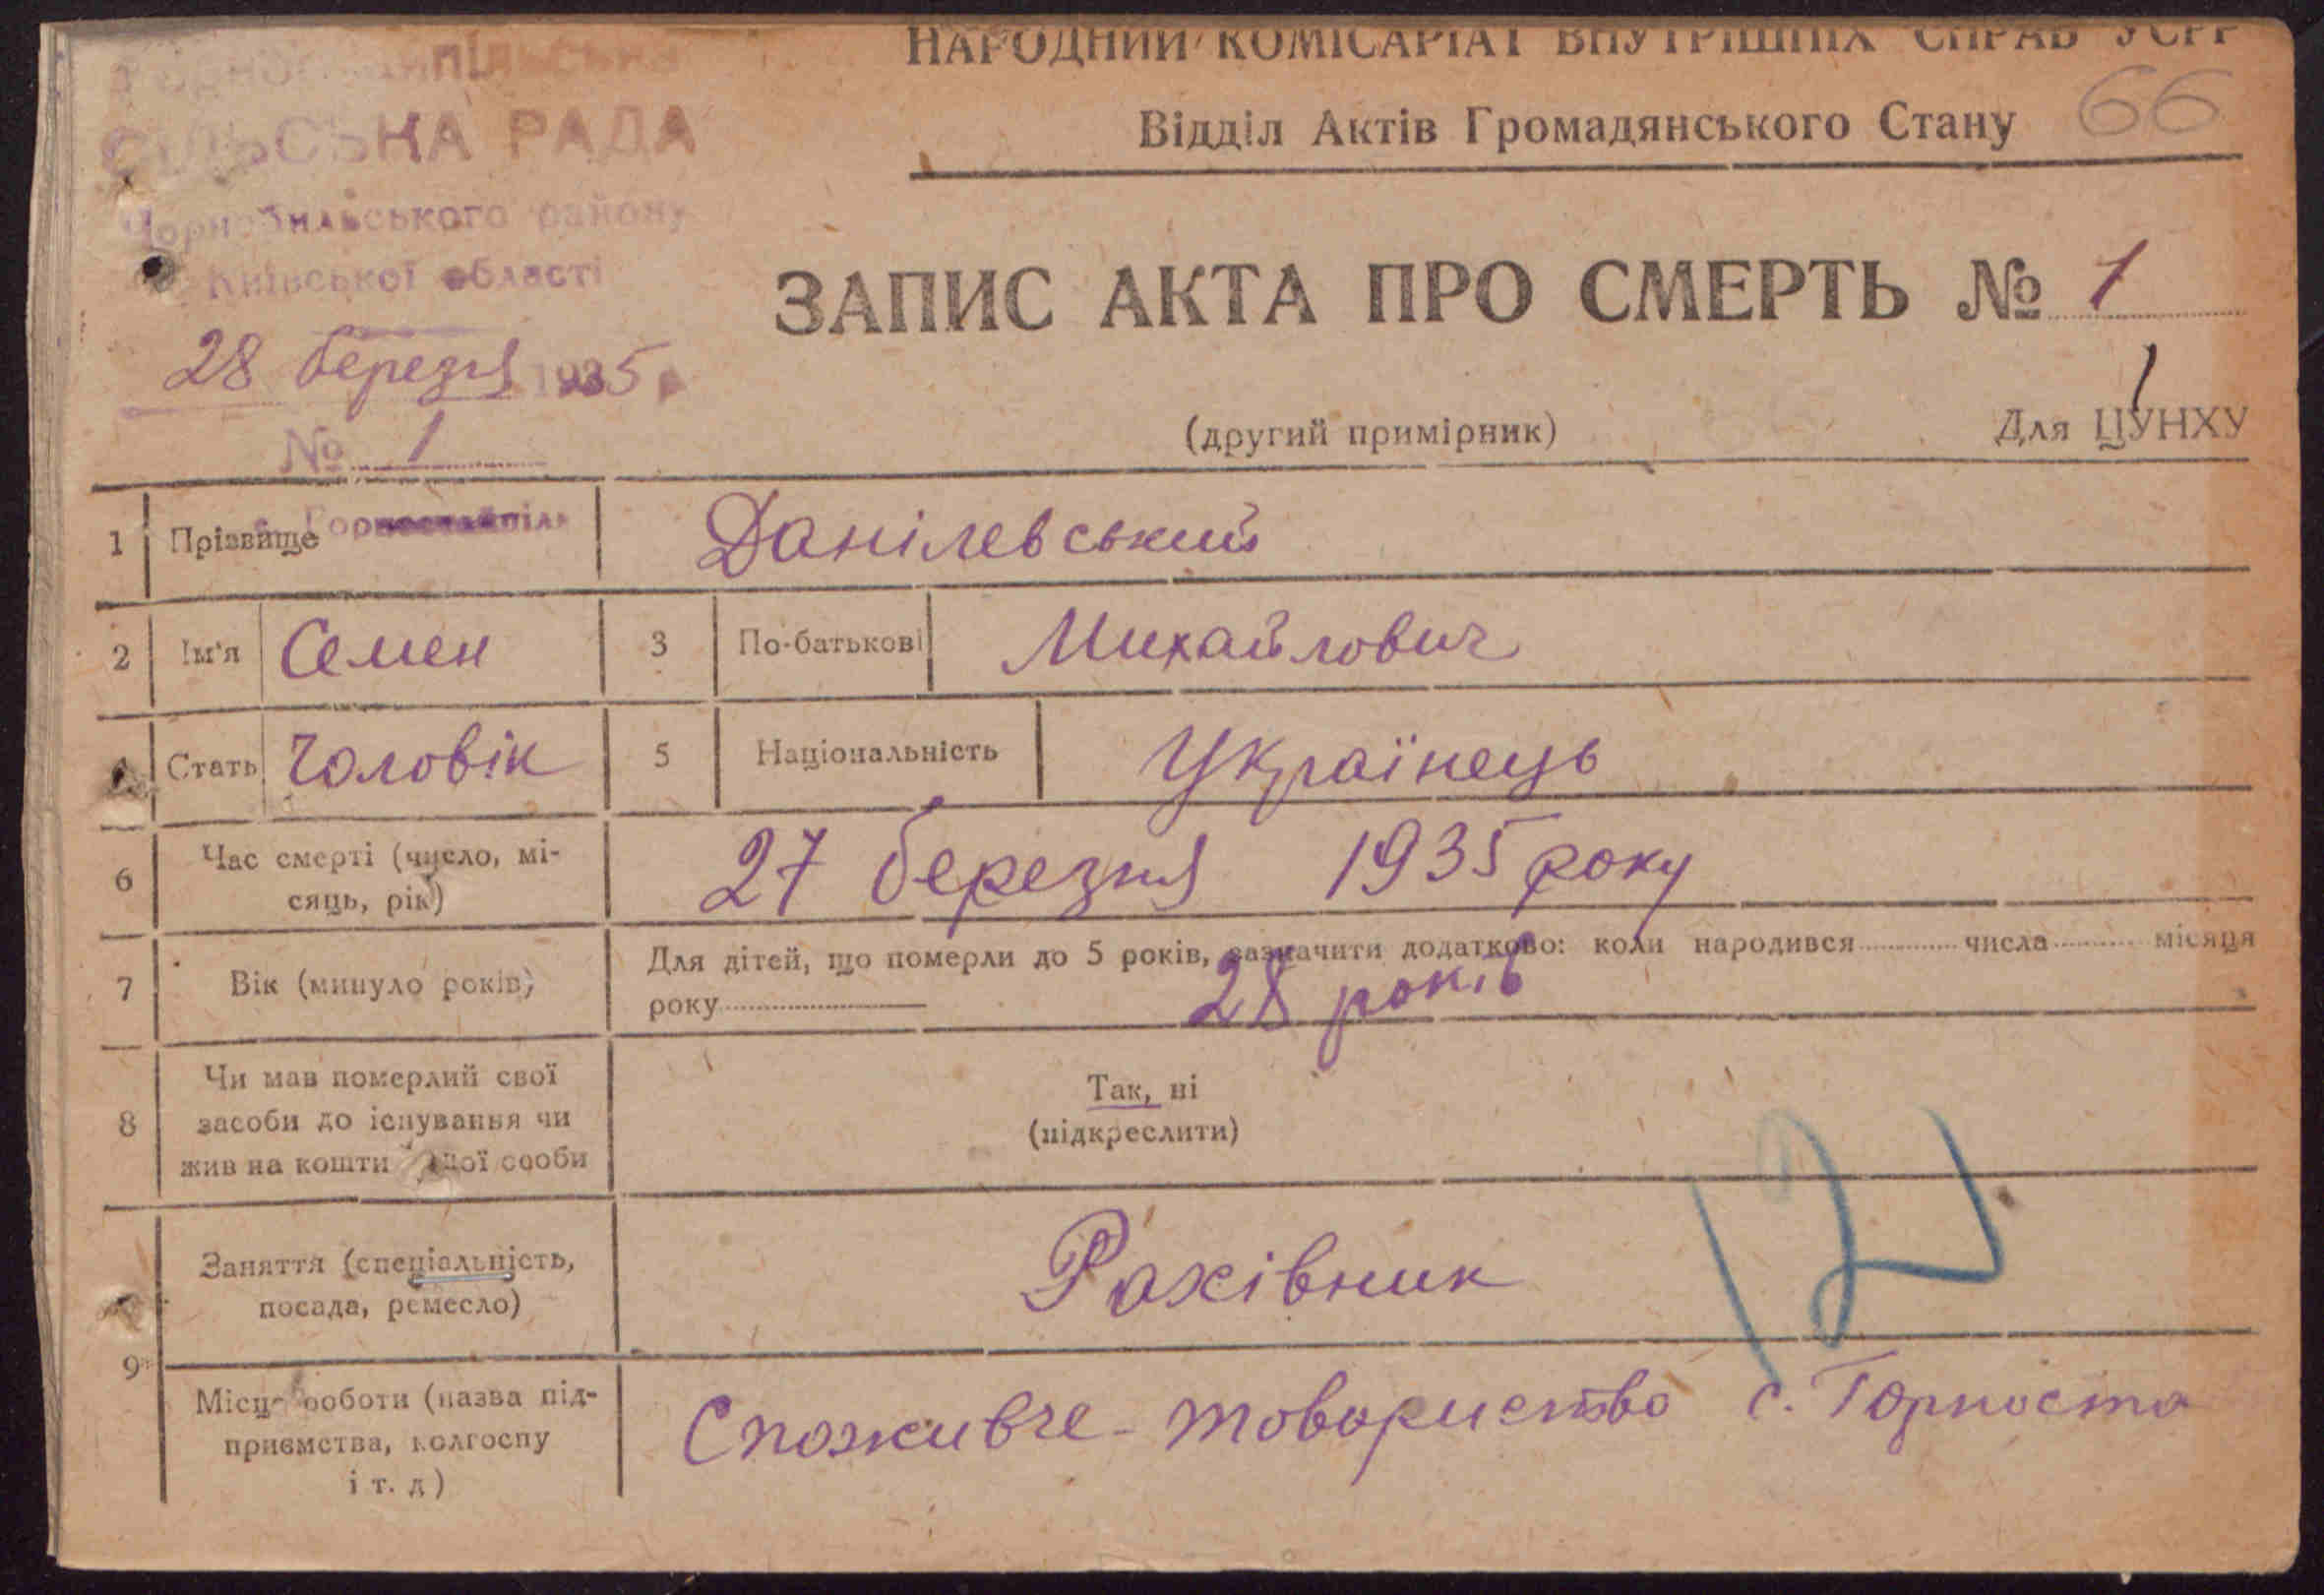 НАРОДНИЙ КОМІСАРІАТ ВНУТРІШНІХ СПРАВ УСРР
Відділ Актів Громадянського Стану 66
СІЛЬСЬКА РАДА
Чорнобильського району
Київської області
28 березня 1935 р
№ 1
ЗАПИС АКТА ПРО СМЕРТЬ № 1
(другий примірник)
Для ЦУНХУ
1
с. Горностайпіль
1 Прізвище Данілевський
2 Ім'я Семен 3 По-батькові Михайлович
4 Стать Чоловік 5 Національність Українець
6 Час смерті (число, мі-
сяць, рік) 27 березня 1935 року
7 Вік (минуло років) Для дітей, що померли до 5 років, зазначити додатково: коли народився числа місяця
року 28 років
8 Чи мав померлий свої
засоби до існування чи
жив на кошти іншої особи
Так, ні
(підкреслити)
12
9 Заняття (спеціальність,
посада, ремесло) Рахівник
Місце роботи (назва під-
приємства, колгоспу
і т. д) Споживче-товариство с. Горноста